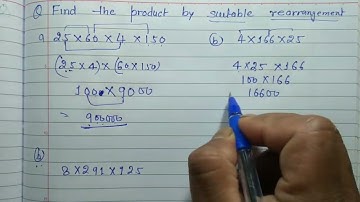 Q Find the product by suitable rearrangement
a 25×60×4×150
(25×4)×(60×150)
100×9000
= 900000
(b) 4×166×25
4×25×166
100×166
16600
8×291×125